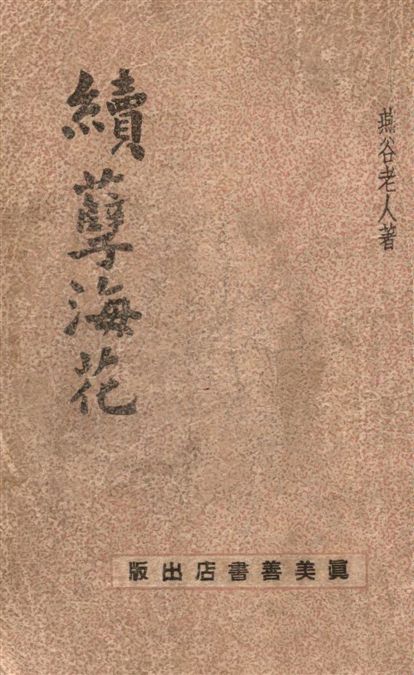 燕谷老人著
續孽海花
眞美善書店出版